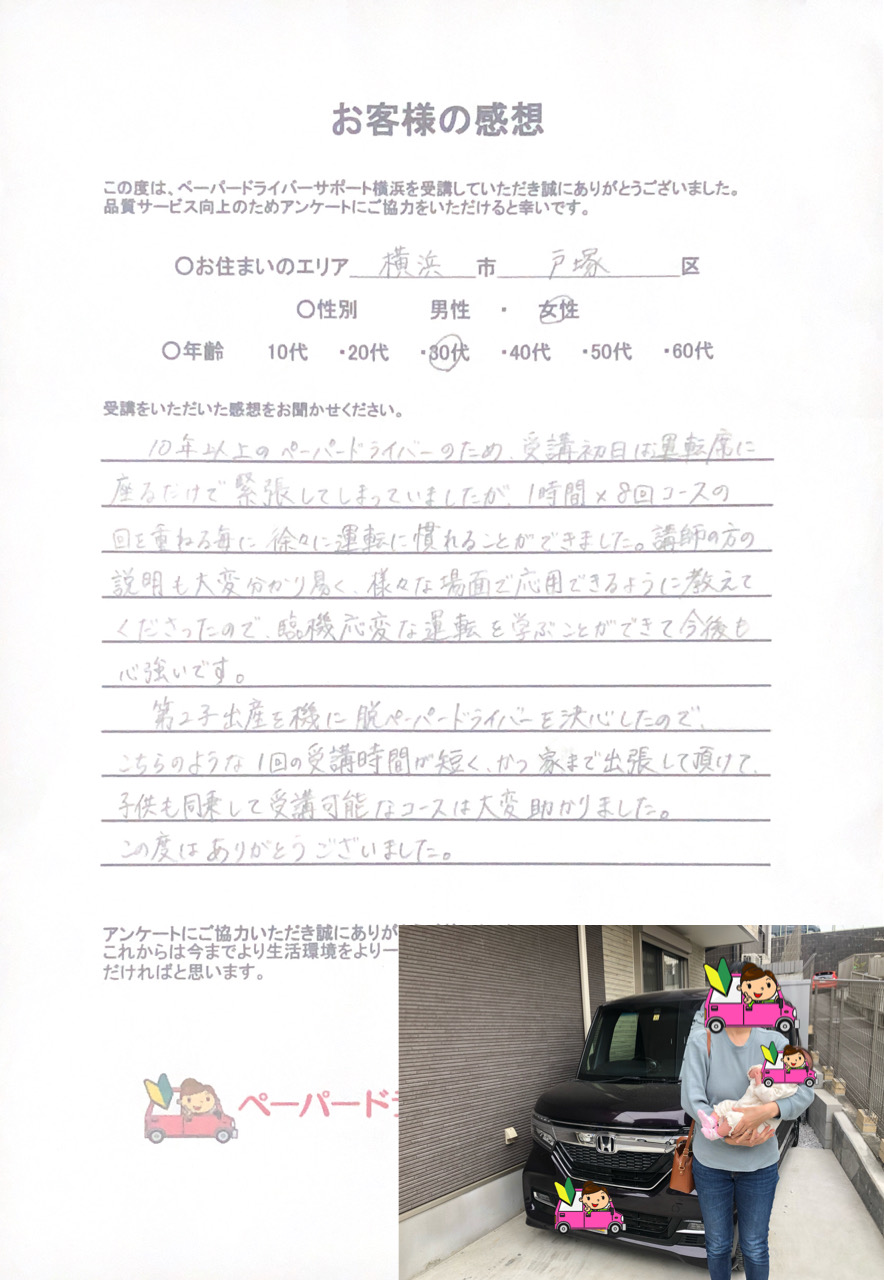 お客様の感想
この度は、ペーパードライバーサポート横浜を受講していただき誠にありがとうございました。
品質サービス向上のためアンケートにご協力をいただけると幸いです。
〇お住まいのエリア 横浜 市 戸塚 区
〇性別 男性 ・ 女性
〇年齢 10代 ・20代 ・30代 ・40代 ・50代 ・60代
受講をいただいた感想をお聞かせください。
10年以上のペーパードライバーのため、受講初日は運転席に
座るだけで緊張してしまっていましたが、1時間×8回コースの
回を重ねる毎に徐々に運転に慣れることができました。講師の方の
説明も大変分かり易く、様々な場面で応用できるように教えて
くださったので、臨機応変な運転を学ぶことができて今後も
心強いです。
第2子出産を機に脱ペーパードライバーを決心したので、
こちらのような1回の受講時間が短く、かつ家まで出張して頂けて、
子供も同乗して受講可能なコースは大変助かりました。
この度はありがとうございました。
アンケートにご協力いただき誠にありが
これからは今までより生活環境をより一
だければと思います。
ペーパード